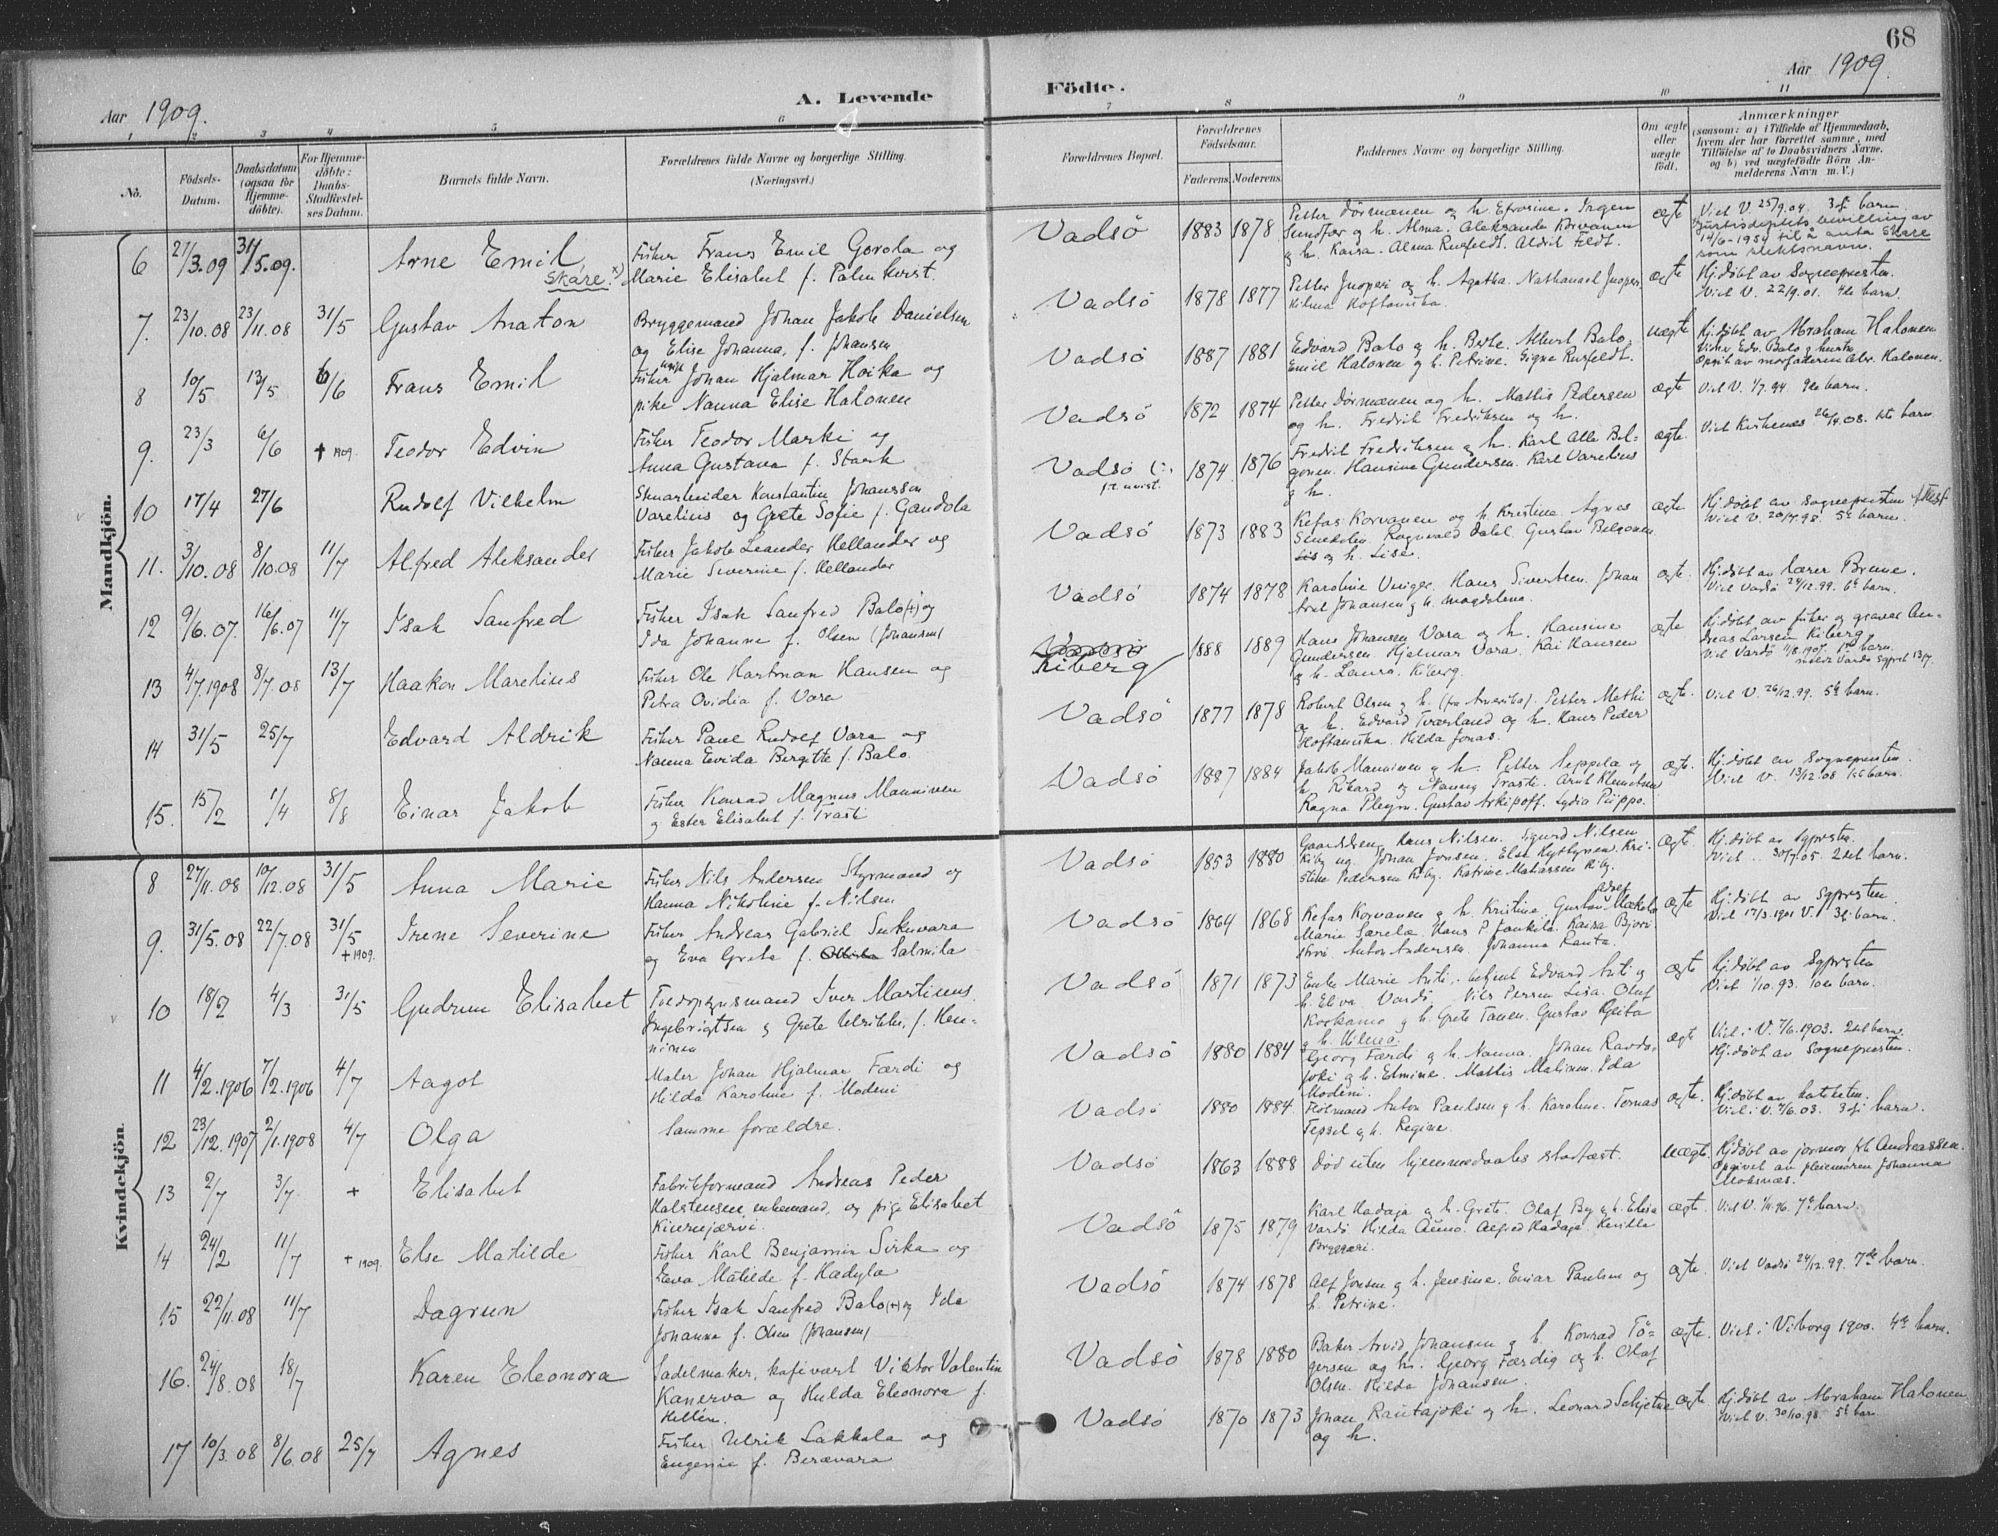 68
Aar 1909.
A. Levende
Födte.
Aar 1909.
1 2 3 4 5 6 7 8 9 10 11
No.
Födsels-
Datum.
Daabsdatum
(ogsaa for
Hjemme-
döbte).
For Hjemme-
döbte:
Daabs-
Stadfæstel-
ses Datum.
Barnets fulde Navn.
Forældrenes fulde Navne og borgerlige Stilling.
(Næringsvei.)
Forældrenes Bopæl.
Forældrenes
Födselsaar.
Faderens. Moderens.
Faddernes Navne og borgerlige Stilling.
Om ægte
eller
uægte
födt.
Anmærkninger
(saasom: a) i Tilfælde af Hjemmedaab,
hvem der har forrettet samme, med
Tilföielse af to Daabsvidners Navne,
og b) ved uægtefödte Börn An-
melderens Navn m. V.)
Mandkjön.
6 21/3.09 31/5.09. Arne Emil
Skåre x)
Fisker Frans Emil Gorola og
Marie Elisabet f. Palmkvist.
Vadsö 1883 1878
Petter Dørmænen og h. Efrosine. Irgen
Sundfær og h. Alma. Aleksander Korvanen
og h. Kaisa. Alma Rusfeldt. Aldrik Feldt.
ægte
Viet V. 25/9.04. 3dj barn.
14/6-1954 til å anta Skåre
som slektsnavn.
7. 23/10.08 23/11.08 31/5 Gustav Anaton
Bryggemand Johan Jakob Danielsen
og Elise Johanna, f. Johansen
Vadsö 1878 1877
Petter Junperi og h. Agatha. Nathanael Junperi
ægte
Hj.døbt av Sognepresten.
Viet V. 22/9.01. 4de barn.
8 10/5 13/5 6/6 Frans Emil
Fisker Johan Hjalmar Hoika og
pike Nanna Elise Halonen
Vadsö 1887 1881
Edvard Balo og h. Berte. Albert Balo.
Emil Halonen og h. Petrine. Signe Rusfeldt.
uægte
Hj.døbt av Abraham Halonen
Vidner Edv. Balo og hustru
Opgit av morfaderen Abr. Halonen.
9. 23/3 6/6 † 1909. Teodor Edvin
Fisker Teodor Marki og
Anna Gustava f. Stark
Vadsö 1872 1874
Petter Dørmænen og h. Mattis Pedersen
og h. Fredrik Fredriksen og h.
ægte
Viet V. 1/7.94. 9de barn.
10 17/4 27/6 Rudolf Vilhelm
Skoarbeider Konstantin Johansson
Varelius og Grete Sofie f. Gandola
Vadsö 1874. 1876
Fredrik Fredriksen og h. Karl Alle Bel-
gonen. Hansine Gundersen. Karl Varelius
og h.
ægte.
Viet Kirkenæs 26/4.08. 1te barn
11. 3/10.08 8/10.08 11/7 Alfred Aleksander
Fisker Jakob Leander Hellander og
Marie Severine f. Hellander
Vadsö 1873 1883
Kefas Korvanen og h. Kristine. Agnes
Ragnvald Dahl. Gustav Belgonen
og h. Lise.
ægte
Hj.døbt av Sognepresten
Viet V. 20/7.98. 5te barn.
12 9/6.07. 16/6.07 11/7 Isak Sanfred
Fisker Isak Sanfred Balo (+) og
Ida Johanne f. Olsen (Johansen)
Vadsö 1874 1878
Karoline Unger. Hans Sivertsen. Johan
Axel Johansen og h. Magdalena.
ægte.
Hj.døbt av lærer Brune.
Viet Vadsö 24/12.99. 6te barn.
13 4/7.1908 8/7.08 13/7 Haakon Marelius
Fisker Ole Hartman Hansen og
Petra Ovidia f. Vara
Kiberg 1888 1889
Hans Johansen Vara og h. Hansine
Gundersen. Hjalmar Vara. Kai Hansen
og h. Laura. Kiberg.
ægte
Hj.døbt av fisker og graver An-
dreas Larsen Kiberg
Viet Vardö 11/8.1907. 1te barn.
meldt Vardö Sgprest 13/7.
14 31/5 25/7 Edvard Aldrik
Fisker Paul Rudolf Vara og
Nanna Evida Bergitte f. Balo.
Vadsö 1877 1878
Robert Olsen og h. (fra Amerika). Petter Mathi
og h. Edvard Tværland og h. Hans Peder
Hoftaniska. Hilda Jonas.
ægte.
Viet V. 26/12.99. 5te barn.
15. 15/2 1/4 8/8 Einar Jakob
Fisker Konrad Magnus Manninen
og Ester Elisabet f. Trasti
Vadsö 1887 1884
Jakob Manninen og h. Petter Seppela og
h. Rikard og Nanny Trasti. Arnt Klemetsen
Ragna Pleym. Gustav Arkipoff. Lydia Piippo.
ægte.
Hj.døbt av Sognepresten.
Viet V. 13/12.08 1te barn.
Kvindekjön.
8 27/11.08 10/12.08 31/5 Anna Marie
Fisker Nils Andersen Styrmand og
Hanna Nikoline f. Nilsen
Vadsö 1853 1880
Hans Nilsen. Sigurd Nilsen
Kiby ug. Johan Jonsen. Else Hyttynen. Kri-
stine Pedersen Kiby. Katrine Matiassen Kiby.
ægte.
Hj.døbt av Sgprstn.
Viet .. 30/7.05. 2det barn.
9. 31/5.08 22/7.08 31/5 Irene Severine
+ 1909.
Fisker Andreas Gabriel Sukuvara
og Eva Greta f. Salmila
Vadsö 1864 1868
Kefas Korvanen og h. Kristine. Gustav Mækelæ
Marie Særelæ. Hans P. Jankila. Kaisa Bjøri
Anton Andersen. Johanna Ranta.
ægte
Hj.døbt av Sgpresten.
Viet 17/3.1901 V. 3dj. barn.
10 18/2 4/3 31/5 Gudrun Elisabet
Toldopsynsmand Iver Martinus
Ingebrigtsen og Grete Ulrikke, f. Hen-
ninen
Vadsö 1871 1873
Enke Marie Anti, Edvard Anti og
h. Elva. Vardö. Nils Persen Lisa. Olaf
Korkamo og h. Grete Tanen. Gustav
og h. Vilma.
ægte
Hj.døbt av Sgpresten
Viet 1/10.93. 10de barn.
11 4/2.1906 7/2.1906 4/7 Aagot
Maler Johan Hjalmar Færdi og
Hilda Karoline f. Modeni
Vadsö 1880 1884
Georg Færdi og h. Nanna. Johan Ravda-
joki og h. Elmine. Mattis Malinen. Ida
Modeni.
ægt
Viet i V. 7/6.1903. 2det barn.
Hj.døbt av Sognepresten.
12 23/12.1907 2/1.1908 4/7 Olga
Samme forældre.
Vadsö 1880 1884.
Anton Paulsen og h. Karoline. Tornas
Tepsel og h. Regine.
ægte.
Hj.døbt av kateketen.
Viet i V. 7/6.03. 3dj barn.
13 2/7 3/7 + Elisabet
Fabrikformand Andreas Peder
Halstensen enkemand, og pige Elisabet
Kinnejærvi.
Vadsö 1863 1888
Død uten hjemmedaabs stadfæst.
uægte.
Hj.døbt av jormor Andreassen.
Opgivet av pleiemoren Johanna
Moksnæs.
14 24/2 11/7 + 1909. Else Matilde
Fisker Karl Benjamin Sirka og
Eeva Matilde f. Hædyla
Vadsö 1875 1879
Karl Hadaja og h. Grete. Olaf By og h. Elisa
Vardö. Hilda Aunio. Alfred Hadaja.
ægte.
Viet V. 1/11.96. 7de barn.
15 22/11.08 11/7 Dagrun
Fisker Isak Sanfred Balo (+) og Ida
Johanna f. Olsen (Johansen)
Vadsö 1874 1878
Alf Jonsen og h. Jensine. Einar Paulsen og
h. Petrine.
ægte.
Viet Vadsö 24/12.99. 7de barn.
16. 24/8.08 18/7 Karen Eleonora
Sadelmaker, kafévært Viktor Valentin
Kanerva og Hulda Eleonora f.
Hellén.
Vadsö 1878 1880
Baker Arvid Johansen og h. Konrad Tö-
gersen og h. Georg Færdig og h. Olaf
Olsen. Hilda Johansen.
ægte.
Viet i Viborg 1900. 4de barn.
17 10/3.08 8/6.08 25/7 Agnes
Fisker Ulrik Lakkala og
Eugenie f. Berævara
Vadsö 1870 1873
Johan Rautajoki og h. Leonard Schjetne
og h.
ægte
Hj.døbt av Abraham Halonen
Viet V. 30/10.98. 5te bar.